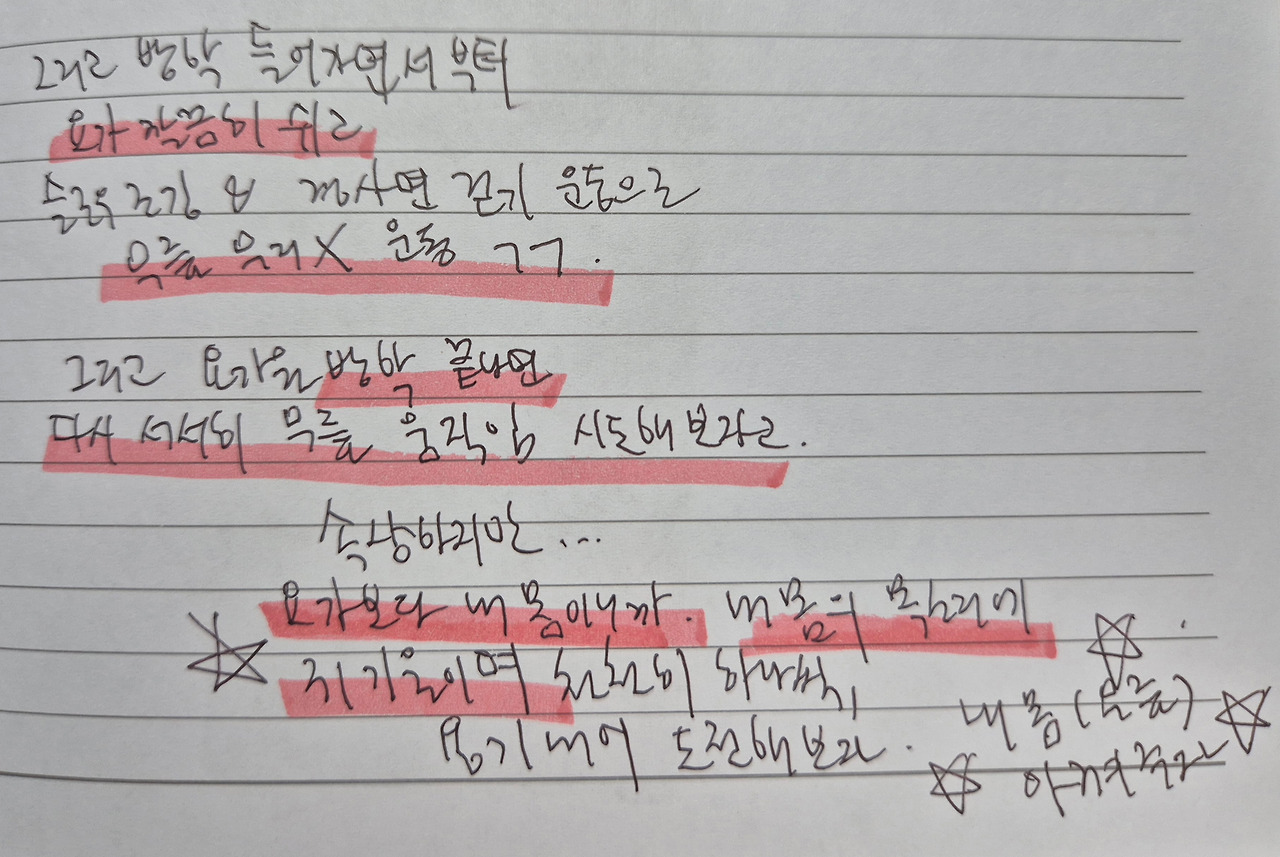 그리고 방학 들어가면서부터
요가 잠금히 쉬고
슬로우조깅 & 경사면 걷기 운동으로
무릎 무리X 운동 ㄱㄱ.
그리고 요가는 방학 끝나면
다시 서서히 무릎 움직임 시도해보자고.
속상하지만...
요가보다 내 몸이니까. 내 몸의 목소리에
귀 기울이며 천천히 하나씩,
용기내어 도전해보자.
내 몸(무릎)
아껴주자